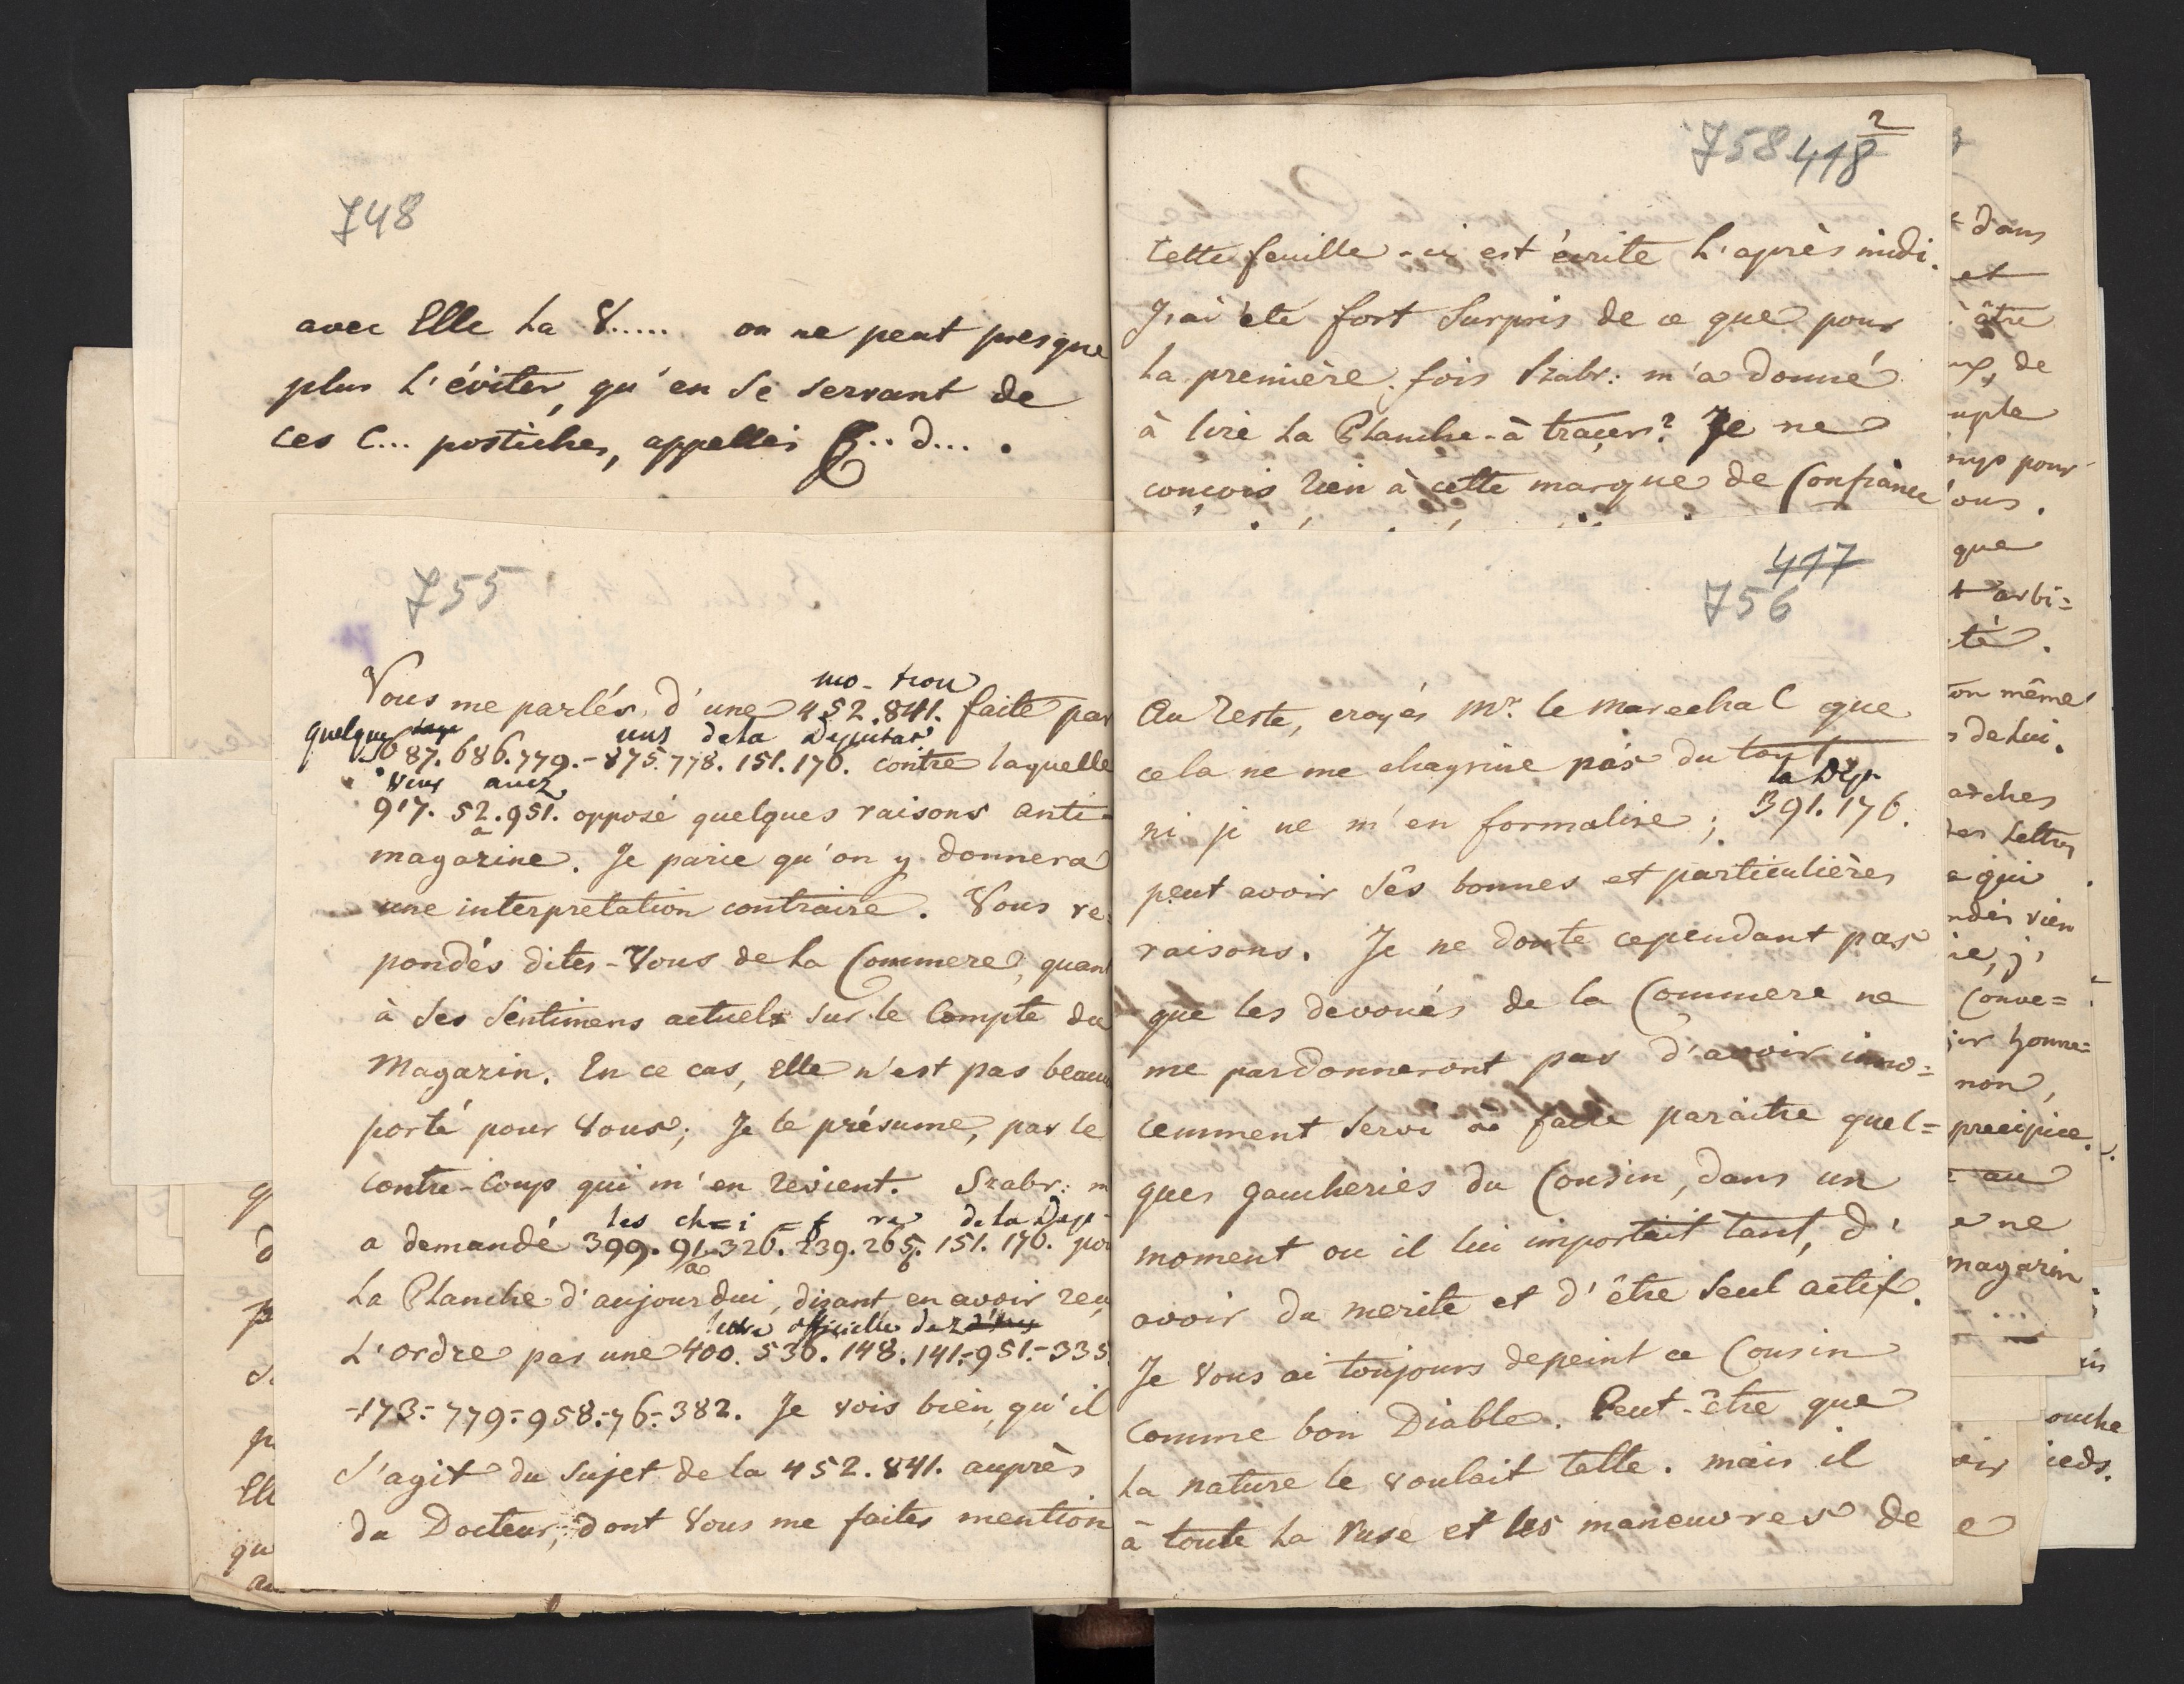 748
avec Elle la V..... on ne peut presque
plus l'éviter, qu'en se servant de
ces C... postiches, appellés G...d... .
755
Vous me parlés d'une mo-tion 452.841. faite par
quelques uns de la Deputat:
687.686.779.-875.778.151.176. contre laquelle
Vous avez
917.52.951. opposé quelques raisons anti-
magazine. Je parie qu'on y donnera
une interpretation contraire. Vous re-
pondés dites-Vous de la Commere, quant
à ses sentimens actuels sur le Compte du
Magazin. En ce cas, Elle n'est pas beau
porté pour Vous; Je le présume, par le
contre-Coup qui m'en revient. Szabr: m
les ch=i=f re de la Dep-
a demandé 399.91.326.239.265.151.176. po
la Planche d'aujourdui, disant en avoir reçu
lettre officielle de
L'ordre par une 400.536.148.141.-951.-335
-173.-779.-958.-76.-382. Je vois bien, qu'il
s'agit du sujet de la 452.841. auprès
du Docteur, dont Vous me faites mention
2
758 418
Cette feuille-ci est écrite l'après midi.
J'ai été fort surpris de ce que pour
la première fois Szabr: m'a donné
à lire la Planche-à tracer? Je ne
conçois rien à cette marque de Confiance
417
756
Au reste, croyés Mr. le Marechal que
cela ne me chagrine pas du tout
la Dep.
ni je ne m'en formalise; 391.176.
peut avoir ses bonnes et particulières
raisons. Je ne doute cependant pas
que les devoués de la Commere ne
me pardonneront pas d'avoir inno=
cemment servi à faire paraitre quel=
ques gaucheries du Cousin, dans un
moment ou il lui importait tant, d'
avoir du merite et d'être seul actif.
Je Vous ai toujours depeint ce Cousin
comme bon Diable. Peut-être que
la nature le voulait telle. mais il
à toute la ruse et les maneuvres de
dans
et
de
pour
ous.
que
arbi=
té.
on même
de lui.
Lettres
qui
rien
Conve=
honne=
non,
precipice.
au
ne
magazin
ouche
ieds.